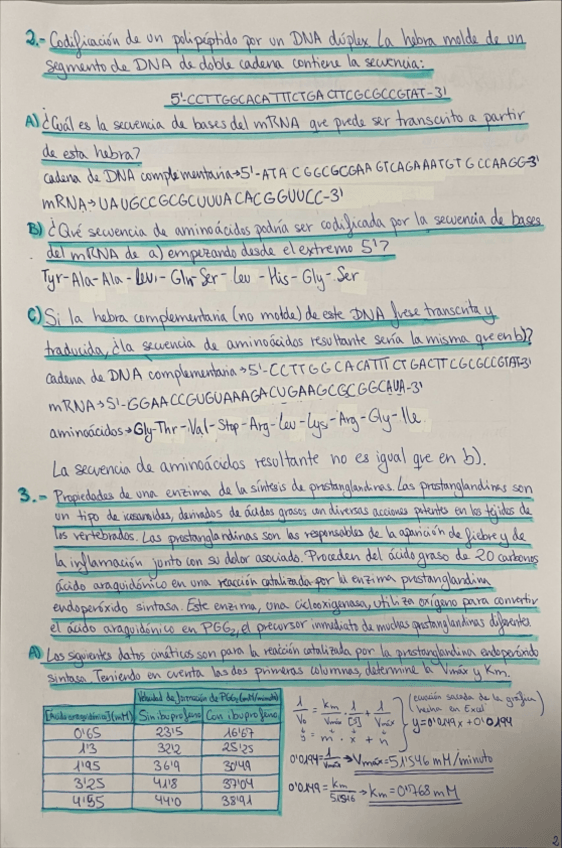 2.- Codificación de un polipéptido por un DNA dúplex. La hebra molde de un
segmento de DNA de doble cadena contiene la secuencia:
5'-CCTTGGCACATTTCTGACTTCGCGCCGTAT-3'
A) ¿Cuál es la secuencia de bases del mRNA que puede ser transcrito a partir
de esta hebra?
cadena de DNA complementaria→5'-ATACGGCGCGAAGTCAGAAATGTGCCAAGG-3'
mRNA→UAUGCCGCGCUUUACACGGUUCC-3'
B) ¿Qué secuencia de aminoácidos podría ser codificada por la secuencia de bases
del mRNA de a) empezando desde el extremo 5'?
Tyr-Ala-Ala-Leu-Gln-Ser-Leu-His-Gly-Ser
C) Si la hebra complementaria (no molde) de este DNA fuese transcrita y
traducida, ¿la secuencia de aminoácidos resultante sería la misma que en b)?
cadena de DNA complementaria→5'-CCTTGGCACATTTCTGACTTCGCGCCGTAT-3'
mRNA→5'-GGAACCGUGUAAAGACUGAAGCGCGGCAUA-3'
aminoácidos→Gly-Thr-Val-Stop-Arg-Leu-Lys-Arg-Gly-Ile
La secuencia de aminoácidos resultante no es igual que en b).
3.- Propiedades de una enzima de la síntesis de prostanglandinas. Las prostanglandinas son
un tipo de icosanoides, derivados de ácidos grasos con diversas acciones potentes en los tejidos de
los vertebrados. Las prostanglandinas son las responsables de la aparición de fiebre y de
la inflamación junto con su dolor asociado. Proceden del ácido graso de 20 carbonos
ácido araquidónico en una reacción catalizada por la enzima prostanglandina
endoperóxido sintasa. Este enzima, una ciclooxigenasa, utiliza oxígeno para convertir
el ácido araquidónico en PGG2, el precursor inmediato de muchas prostanglandinas diferentes
A) Los siguientes datos cinéticos son para la reacción catalizada por la prostanglandina endoperóxido
sintasa. Teniendo en cuenta las dos primeras columnas, determine la Vmáx y Km.
Velocidad de formación de PGG2 (mM/minuto)
[Ácido araquidónico] (mM) Sin ibuprofeno Con ibuprofeno
0'65 23'5 16'67
1'3 32'2 25'25
1'95 36'9 30'49
3'25 41'8 37'04
44'0 38'91
1/V0 = Km/Vmáx · 1/[S] + 1/Vmáx
y = m · x + n
(ecuación sacada de la gráfica
hecha en Excel)
y=0'0149x+0'0194
0'0194=1/Vmáx → Vmáx=51'546 mM/minuto
0'0149=Km/51'546 → Km=0'768 mM
2